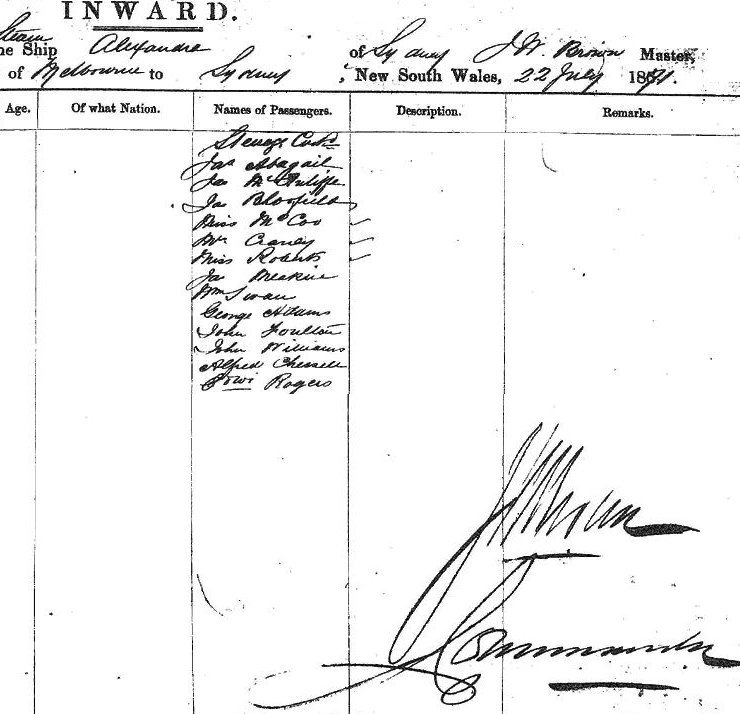 INWARD.
Steam
he Ship Alexandra of Sydney J. W. Brown Master,
of Melbourne to Sydney, New South Wales, 22 July 1871.
Age. Of what Nation. Names of Passengers. Description. Remarks.
Steerage Contd
Jas Abagail
Jas McAuliffe
Jas Bloofield
Miss McCoo
Mr Craney
Miss Roberts
Jas Meakin
Wm Swan
George Adams
John Foulton
John Williams
Alfred Chessell
Rogers
J W Brown
Commander